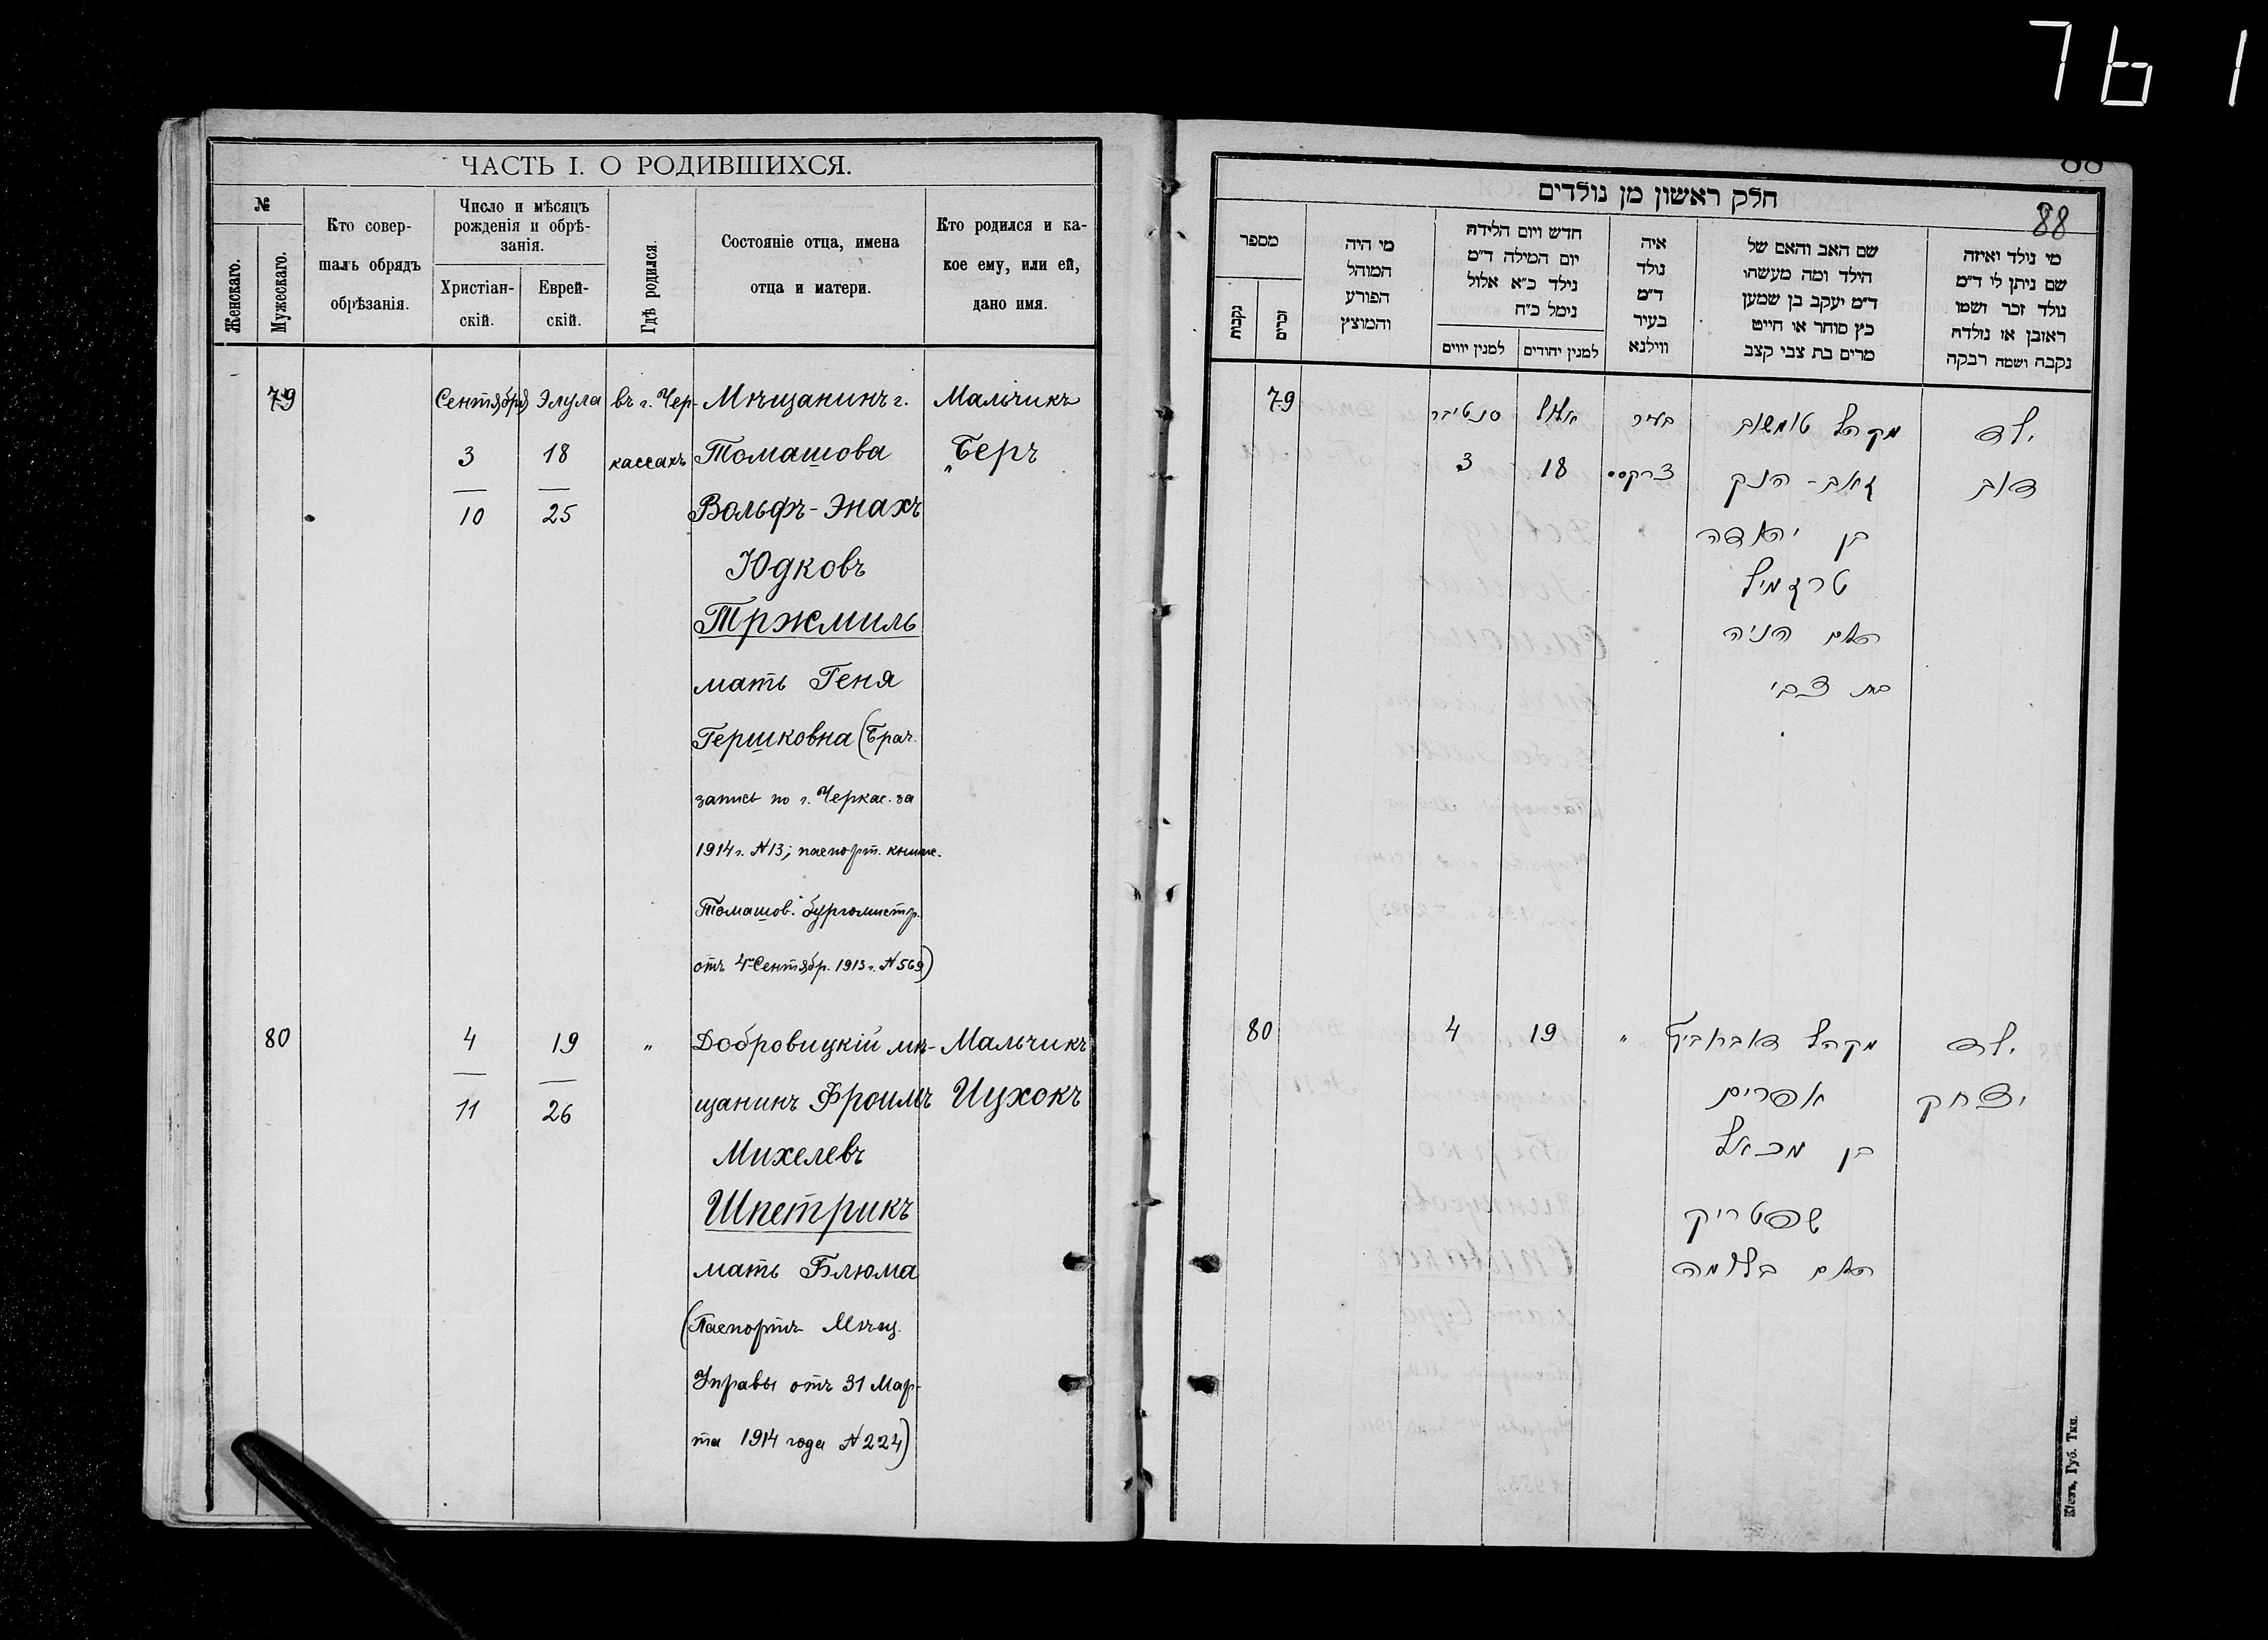 761
ЧАСТЬ I. О РОДИВШИХСЯ.
№
Женскаго.
Мужескаго.
Кто совер-
шалъ обрядъ
обрѣзанія.
Число и мѣсяцъ
рожденія и обрѣ-
занія.
Христіан-
скій.
Еврей-
скій.
Гдѣ родился.
Состояніе отца, имена
отца и матери.
Кто родился и ка-
кое ему, или ей,
дано имя.
79 Сентября Элула въ г. Чер- Мѣщанинъ г. Мальчикъ
3 18 кассахъ Томашова „Беръ
10 25 Вольфъ-Энахъ
Юдковъ
Тржмиль
мать Геня
Гершковна (Брач.
запись по г. Черкас. за
1914 г. № 13; паспорт. книж.
Томашов. бургомистр.
отъ 4 Сентябр. 1913 г. № 569)
80 4 19 „ Добровицкій мѣ- Мальчикъ
11 26 щанинъ Фроимъ Ицхокъ
Михелевъ
Шпетрикъ
мать Блюма
(Паспортъ Мѣщ.
Управы отъ 31 Мар-
та 1914 года № 224)
88
חלק ראשון מן נולדים
88
מספר
נקבות
זכרים
מי היה
המוהל
הפורע
והמוצץ
חדש ויום הלידה
יום המילה ד״מ
נילד כ״א אלול
נימל כ״ח
למנין יווים
למנין יהודים
איה
נולד
ד״מ
בעיר
ווילנא
שם האב והאם של
הילד ומה מעשהו
ד״מ יעקב בן שמען
כץ סוחר או חייט
מרים בת צבי קצב
מי נולד ואיזה
שם ניתן לו ד״מ
נולד זכר ושמו
ראובן או נולדה
נקבה ושמה רבקה
79 סנטיבר אלול בעיר מקהל טומשוב ילד
3 18 צרקסס זאב-הנק דוב
בן יהודה
טרזמיל
האם הניה
בת צבי
80 4 19 „ מקהל ילד
אפרים יצחק
בן מכאל
שפטריק
האם בלומה
Кіевъ, Губ. Тип.